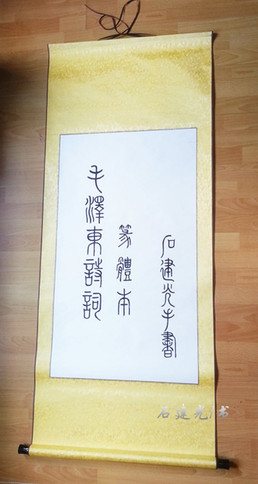 石建光手書
篆體本
毛澤東詩詞
石建光 书